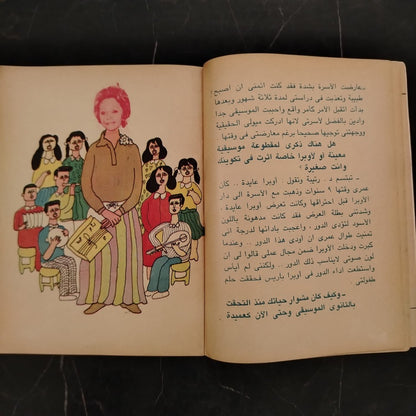 وعارضت الأسرة بشدة فقد كنت اتمنى ان اصبح
طبيبة وتعذبت فى دراستى لمدة ثلاثة شهور وبعدها
بدأت اتقبل الأمر كأمر واقع واحببت الموسيقى جدا
وادين بالفضل لأسرتى لانها ادركت ميولى الحقيقية
ووجهتنى توجيها صحيحا برغم معارضتى فى وقتها .
هل هناك ذكرى لمقطوعة موسيقية
معينة أو لأوبرا خاصة اثرت فى تكوينك
وانت صغيرة ؟
ـ تبتسم د . رتيبة وتقول . أوبرا عايدة .. كان
عمرى وقتها ٩ سنوات وذهبت مع الأسرة الى دار
الأوبرا قبل احتراقها وكانت تعرض أوبرا عايدة
وشدتنى بطلة العرض فقد كانت مدهونة باللون
الأسود لتؤدى الدور .. واعجبت بأدائها لدرجة انى
تمنيت طوال عمرى ان أودى هذا الدور .. وعندما
كبرت ودخلت الأوبرا ضمن مجال عملى قالوا لى ان
لون صوتى لايناسب ذلك الدور .. ولكننى لم أيأس
واستطعت اداء الدور فى أوبرا باريس فحققت حلم
طفولتى .
ـ وكيف كان مشوار حياتك منذ التحقت
بالثانوى الموسيقى وحتى الأن كعميدة